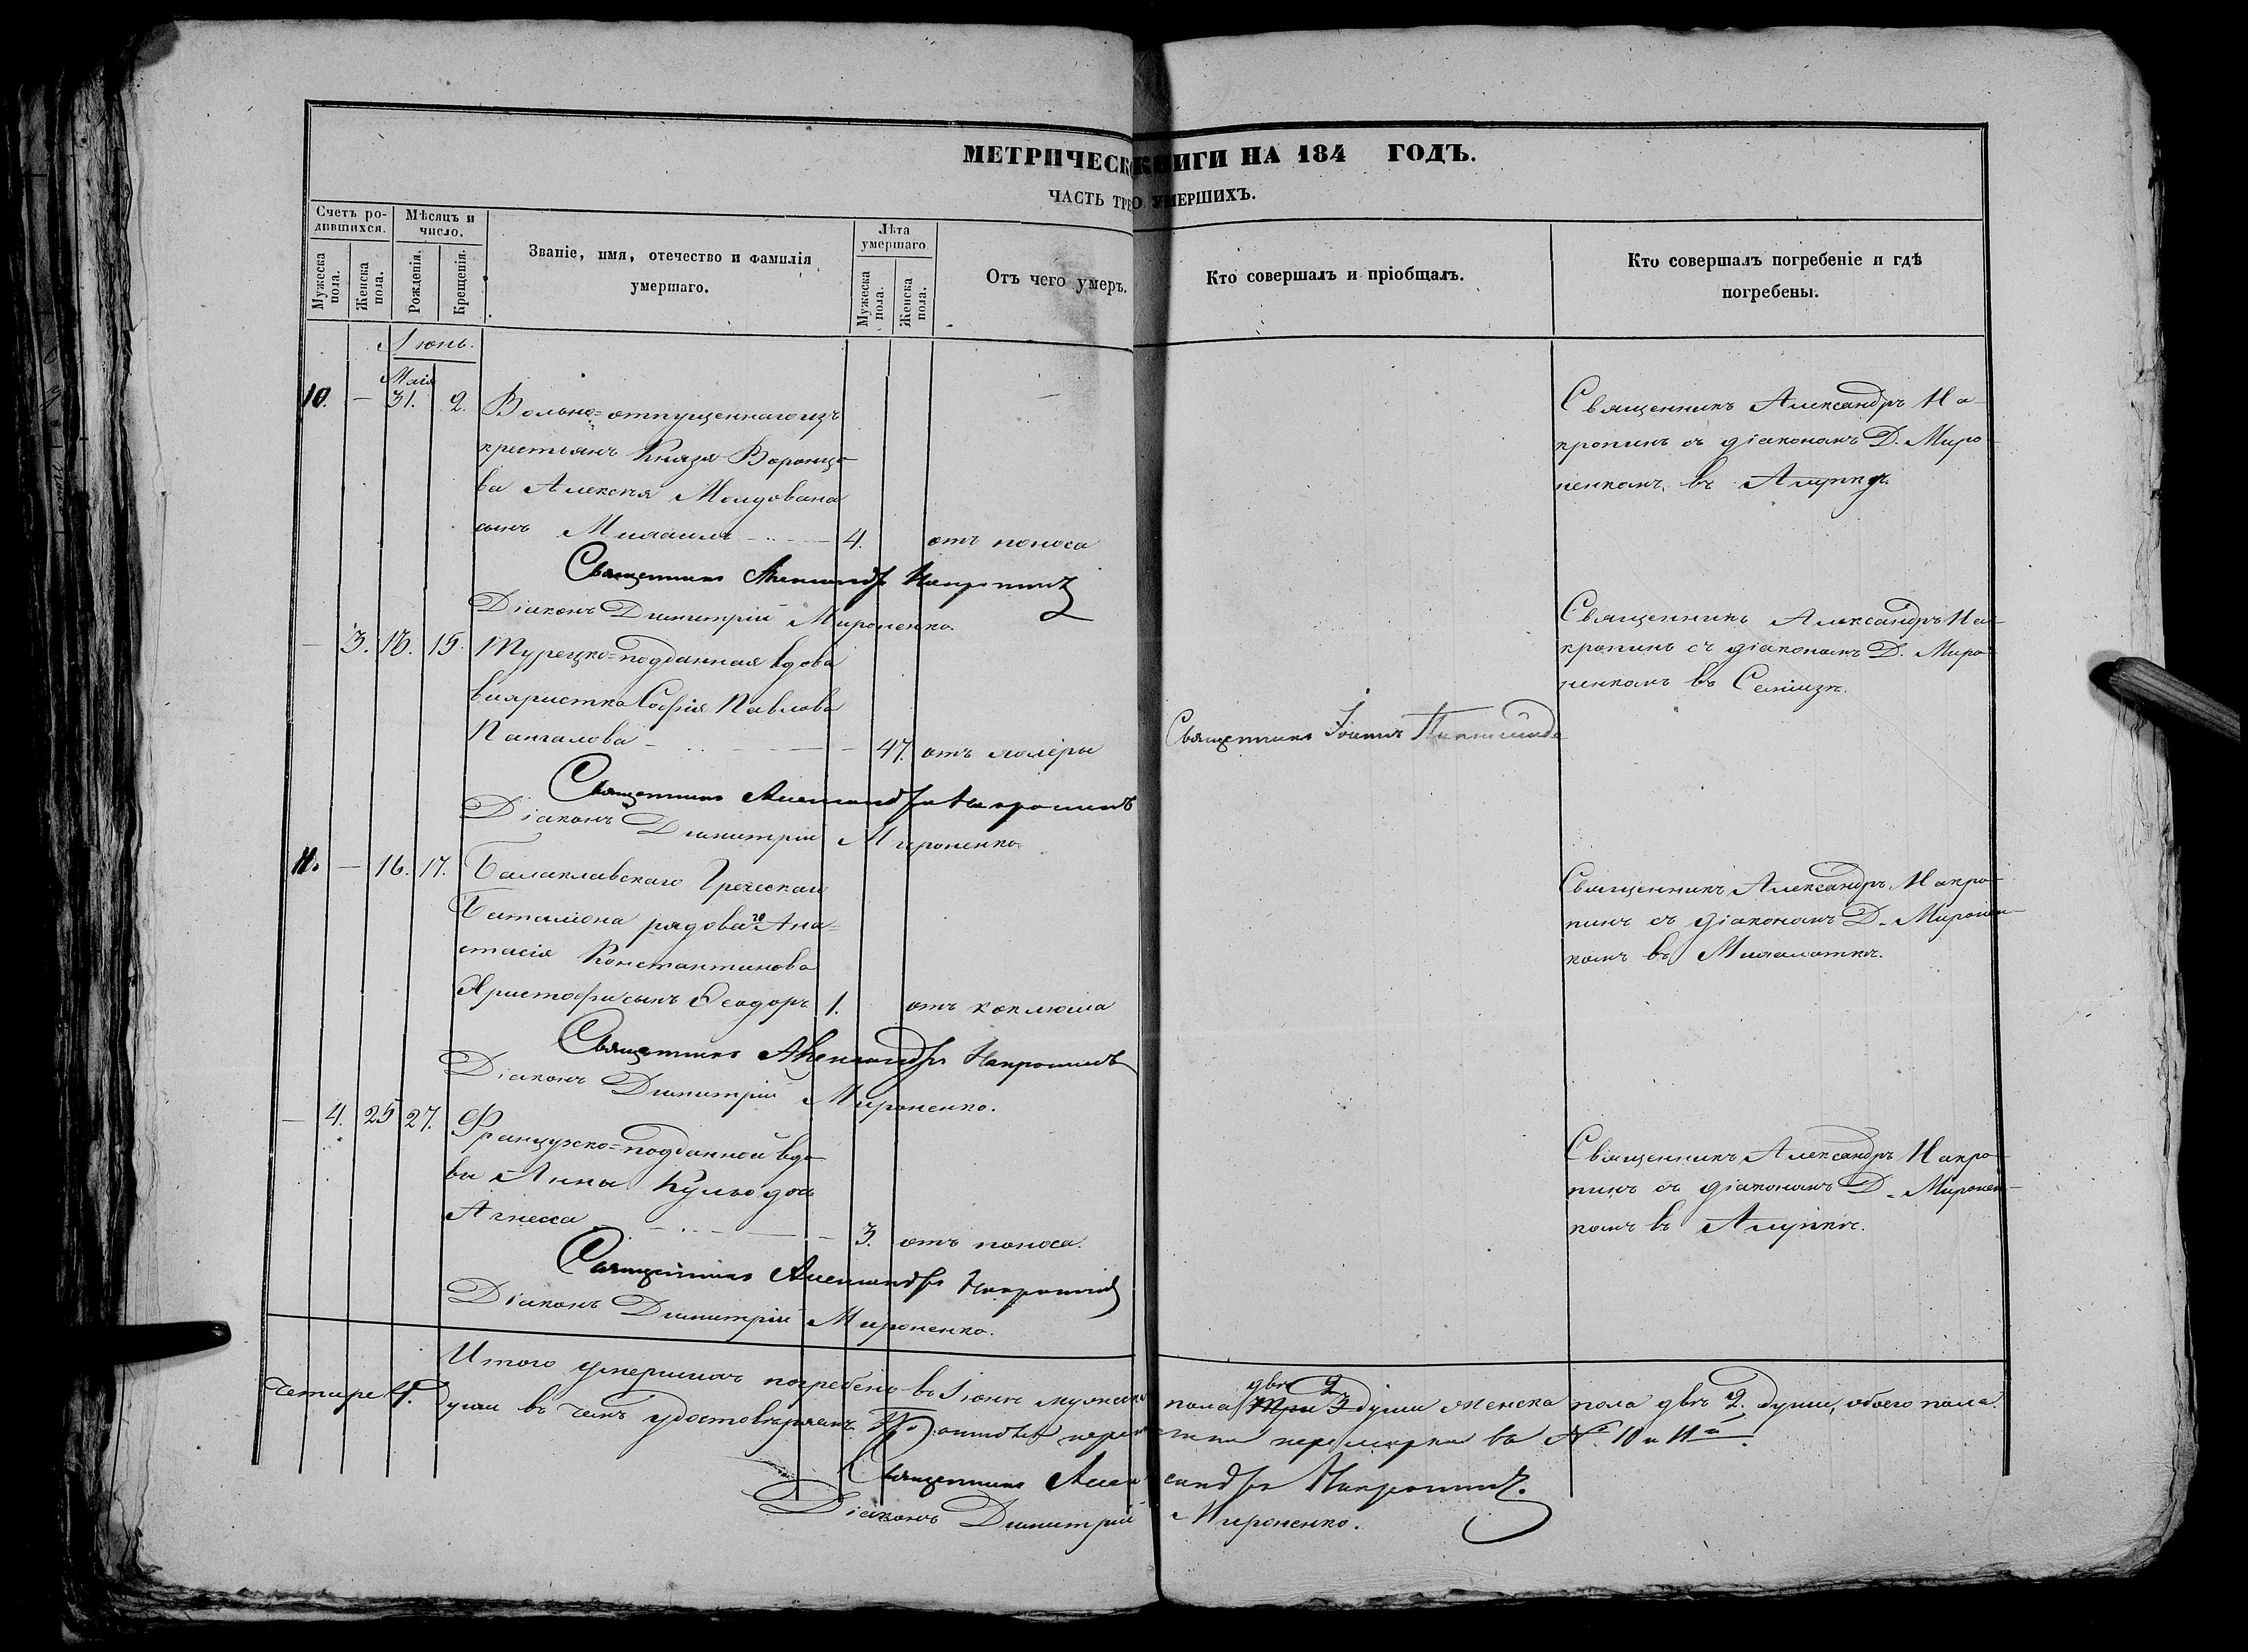 МЕТРИЧЕСКО КНИГИ НА 184 ГОДЪ.
ЧАСТЬ ТРЕ О УМЕРШИХЪ.
Счетъ ро-
дившихся.
Мѣсяцъ и
число.
Мужеска пола.
Женска пола.
Рожденія.
Крещенія.
Званіе, имя, отечество и фамилія
умершаго.
Лѣта
умершаго
Мужеска пола.
Женска пола.
Отъ чего умеръ.
Кто совершалъ и пріобщалъ.
Кто совершалъ погребеніе и гдѣ
погребены.
Іюнь.
Маія
10. — 31. 2. Вольно=отпущеннаго изъ
крестьянъ Князя Воронцо-
ва Алексѣя Молдована
сынъ Михаилъ 4. отъ поноса
Священникъ Александръ На-
кропинъ съ діакономъ Д. Миро-
ненкомъ, въ Алупкѣ.
Священникъ Александръ Накропинъ
Діаконъ Димитрій Мироненко.
— 3. 13. 15. Турецко=подданная вдова
Софія Павлова
47. отъ холеры
Священникъ Іоаннъ
Священникъ Александръ На-
кропинъ съ діакономъ Д. Миро-
ненкомъ въ Симеизѣ.
Священникъ Александръ Накропинъ
Діаконъ Димитрій Мироненко.
11. — 16. 17. Балаклавскаго Греческаго
Баталіона рядоваго Ана-
стасія Константинова
Христофи сынъ Ѳеодоръ 1. отъ коклюша
Священникъ Александръ Накро-
пинъ съ діакономъ Д. Миронен-
комъ въ Мисхоткѣ.
Священникъ Александръ Накропинъ
Діаконъ Димитрій Мироненко.
— 4. 25 27. Французско=подданной вдо-
вы Анны дочь
Агнесса 3. отъ поноса.
Священникъ Александръ Накро-
пинъ съ діакономъ Д. Миронен-
комъ въ Алупкѣ.
Священникъ Александръ Накропинъ
Діаконъ Димитрій Мироненко.
Итого умершихъ погребено въ Іюнѣ мужеска пола три 3 двѣ 2 души женска пола двѣ 2. души, обоего пола
четыре 4. души въ чемъ удостовѣряемъ. въ № 10 и 11
Священникъ Александръ Накропинъ.
Діаконъ Димитрій Мироненко.